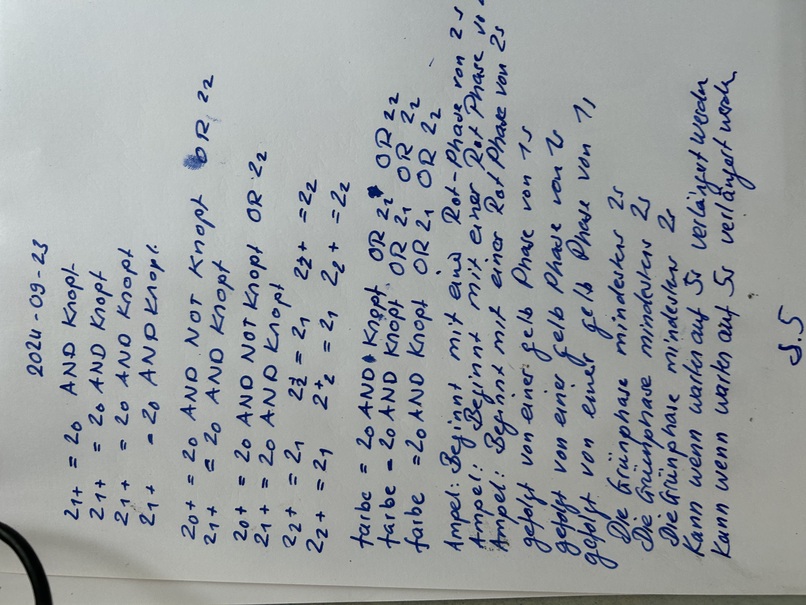 2024-09-23
Z1+ = Z0 AND Knopf
Z1+ = Z0 AND Knopf
Z1+ = Z0 AND Knopf
Z1+ = Z0 AND Knopf.
Z0+ = Z0 AND NOT Knopf OR Z2
Z1+ = Z0 AND Knopf
Z0+ = Z0 AND NOT Knopf OR Z2
Z1+ = Z0 AND Knopf
Z2+ = Z1 Z2+ = Z1 Z2+ = Z2
Z2+ = Z1 Z2+ = Z1 Z2+ = Z2
farbe = Z0 AND Knopf OR Z1 OR Z2
farbe = Z0 AND Knopf OR Z1 OR Z2
farbe = Z0 AND Knopf OR Z1 OR Z2
Ampel: Beginnt mit eine Rot-Phase von 2s
Ampel: Beginnt mit einer Rot Phase von
Ampel: Beginnt mit einer Rot Phase von 2s
gefolgt von einer gelb Phase von 1s
gefolgt von einer gelb Phase von 1s
gefolgt von einer gelb Phase von 1s
Die Grünphase mindestens 2s
Die Grünphase mindestens 2s
Die Grünphase mindestens 2s
Kann wenn warten auf 5s verlängert werden
Kann wenn warten auf 5s verlängert werden
S.5